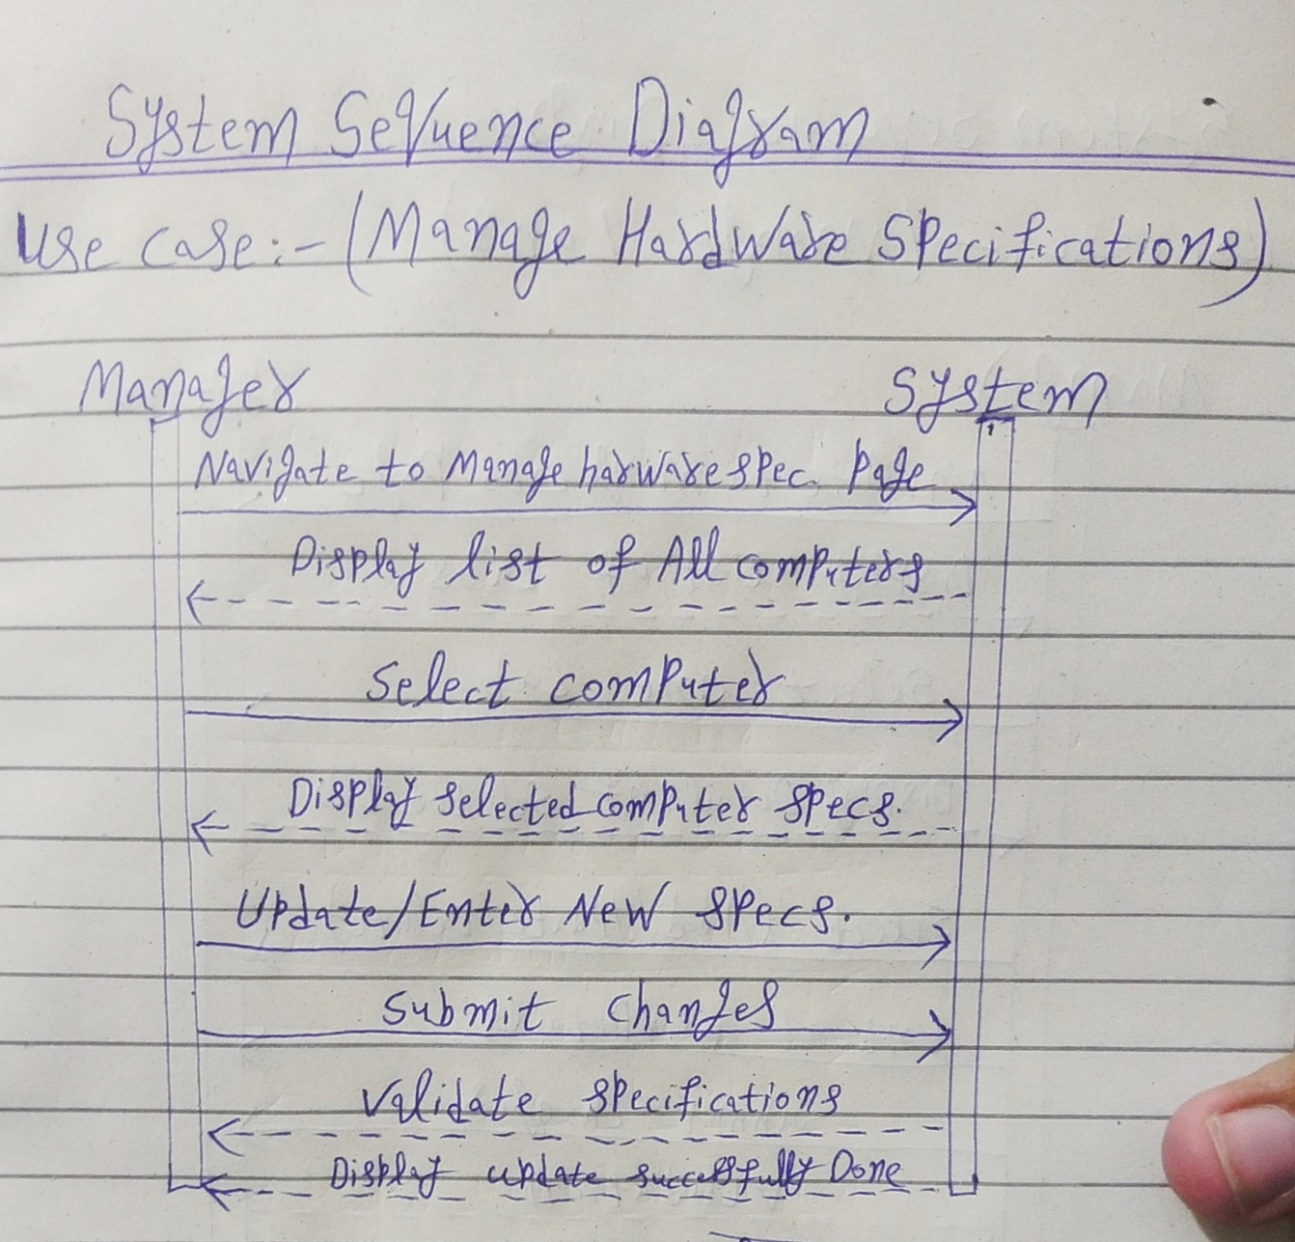 System Sequence Diagram
Use case:- (Manage Hardware Specifications)
Manager System
Navigate to Manage harware spec. Page
Display list of All computers
Select computer
Display selected computer specs.
Update/Enter New specs.
Submit Changes
Validate specifications
Display update successfully Done